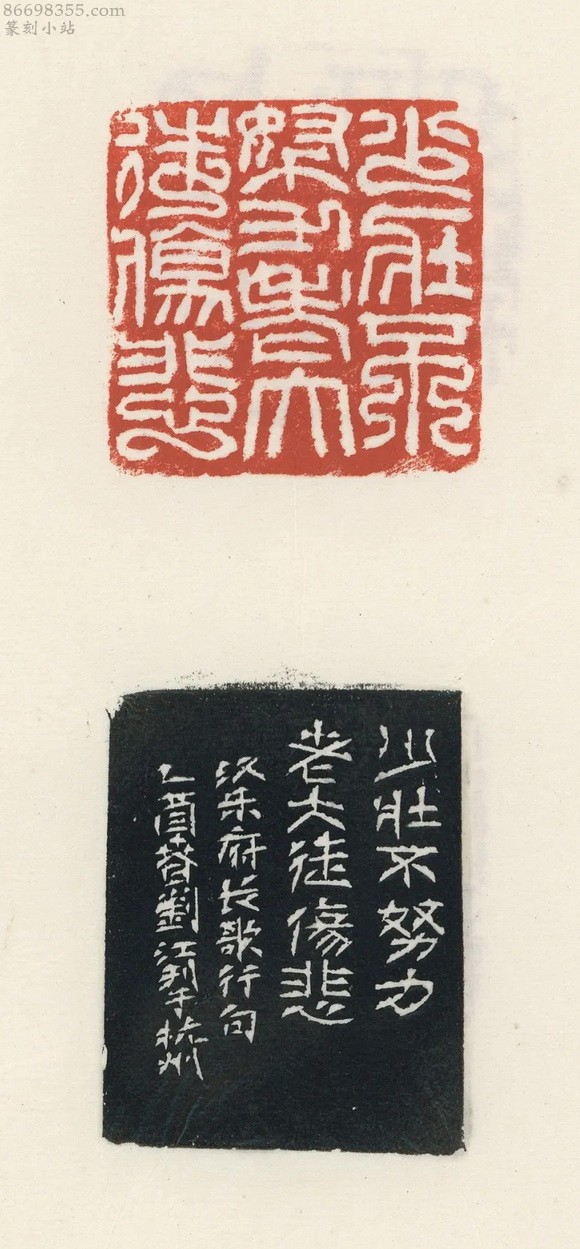 86698355.com
篆刻小站
少壯不
努力老大
徒傷悲
少壮不努力
老大徒傷悲
汉乐府长歌行句
乙酉春劉江于杭州